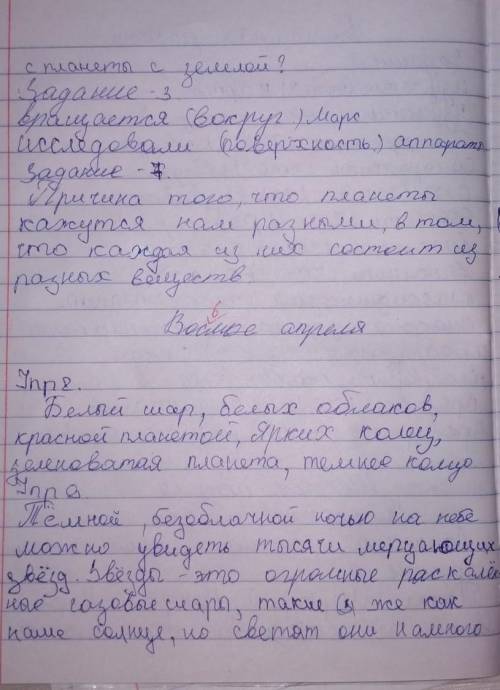 с планеты с землой?
Задание - 3
вращается (вокруг) Марс
исследовали (поверхность) аппараты
Задание - 7.
Причина того, что планеты
кажутся нам разными, в том,
что каждая из них состоит из
разных веществ
Восмое апреля
ь
Упр 2.
Белый шар, белых облаков,
красной планетой, ярких колец,
зеленоватая планета, темнее кольцо
Упр
Тёмной, безоблачной ночью на небе
можно увидеть тысячи мерцающих
звёзд. Звёзды - это огромные раскалён
ные газовые шары, такие же как
наше солнце, но светят они намного